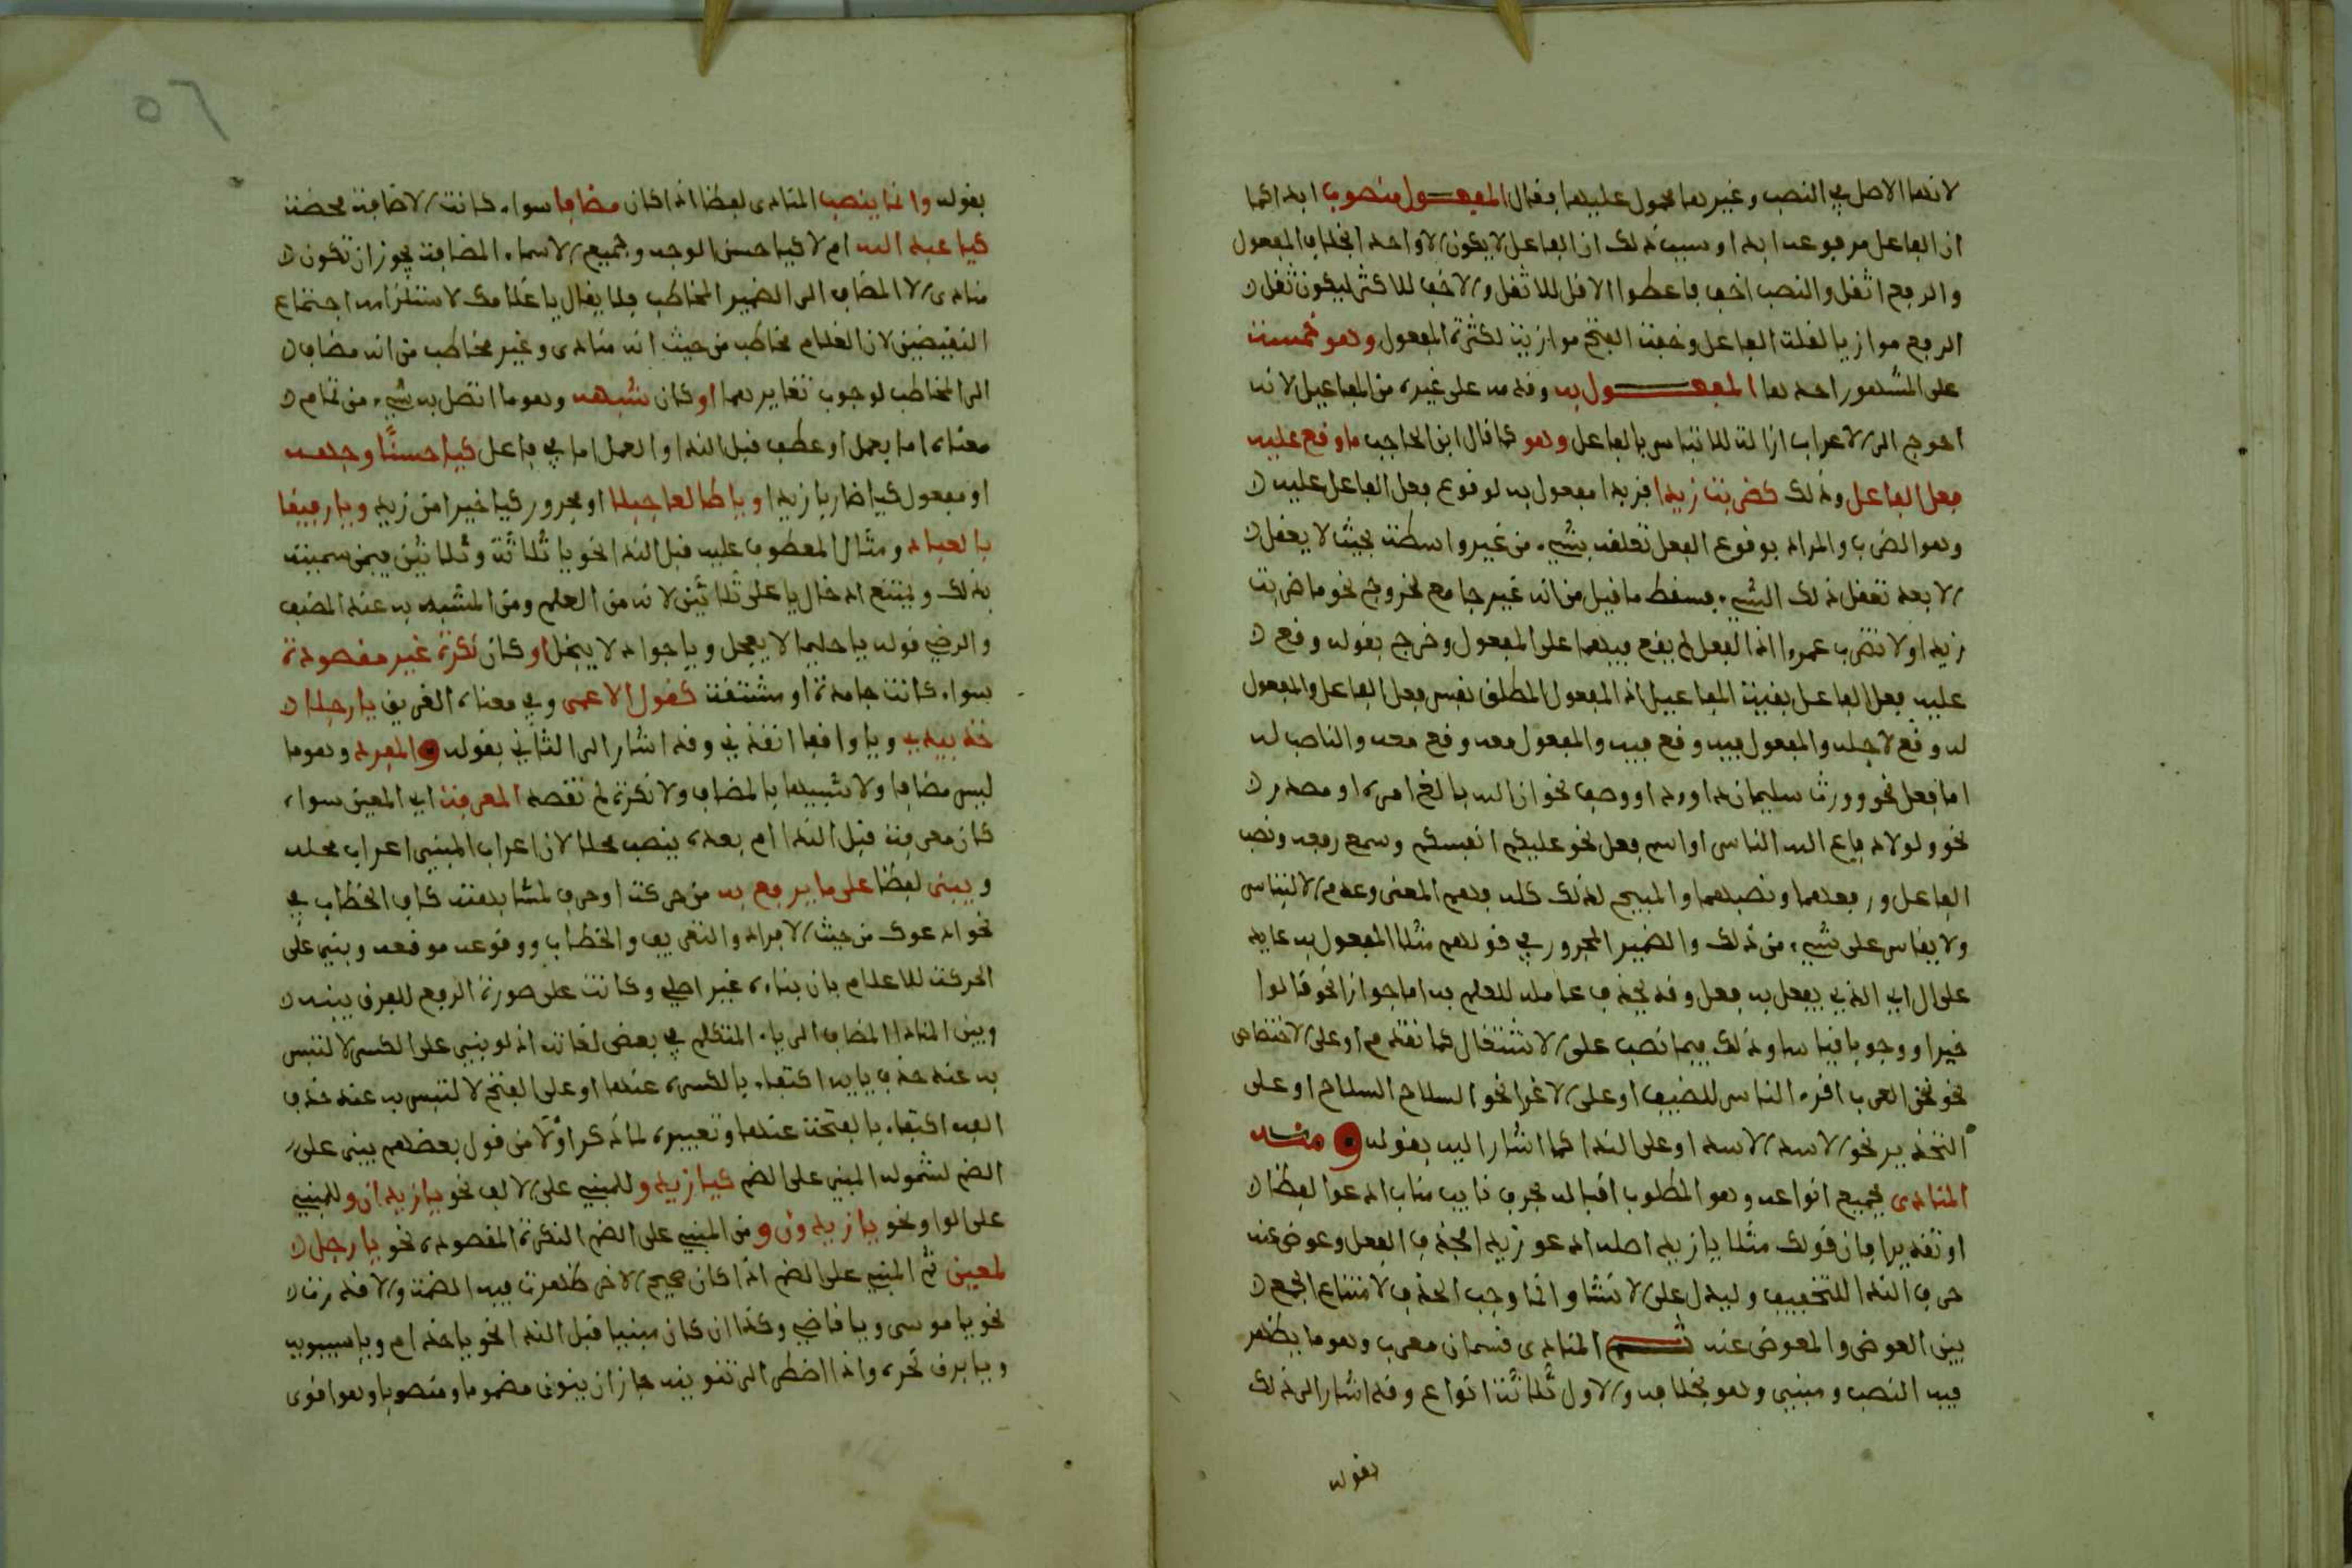 لانها الاصل في النصب وغيرها محمول عليها فقال المفعول منصوب ابدا كما
ان الفاعل مرفوع ابدا وسبب ذلك ان الفاعل لا يكون الا واحدا بخلاف المفعول
والرفع اثقل والنصب اخف فاعطوا الاقل للاثقل والاخف للاكثر ليكون ثقل
الرفع موازيا لقلة الفاعل وخفة الفتح موازية لكثرة المفعول وهو خمسة
على المشهور احدها المفعول به وقدمه على غيره من المفاعيل لانه
احوج الى الاعراب ازالة للالتباس بالفاعل وهو كما قال ابن الحاجب ما وقع عليه
فعل الفاعل وذلك كضربت زيدا فزيدا مفعول به لوقوع فعل الفاعل عليه
وهو الضرب والمراد بوقوع الفعل تعلقه بشيء من غير واسطة بحيث لا يعقل
الا بعد تعقل ذلك الشيء فسقط ما قيل من انه غير جامع لخروج نحو ما ضربت
زيدا ولا تضرب عمروا اذ الفعل لم يقع فيهما على المفعول وخرج بقوله وقع
عليه فعل الفاعل بقية المفاعيل اذ المفعول المطلق نفس فعل الفاعل والمفعول
له وقع لاجله والمفعول فيه وقع فيه والمفعول معه وقع معه والناصب له
اما فعل نحو وورث سليمان داوود او وصف نحو ان الله بالغ امره او مصدر
نحو ولولا دفاع الله الناس او اسم فعل نحو عليكم انفسكم وسمع رفعه ونصب
الفاعل ورفعهما ونصبهما والمبيح لذلك كله فهم المعنى وعدم الالتباس
ولا يقاس على شيء من ذلك والضمير المجرور في قولهم مثلا المفعول به عايد
على ال اي الذي يفعل به فعل وقد يحذف عامله للعلم به اما جوازا نحو قالوا
خيرا ووجوبا قياسا وذلك فيما نصب على الاشتغال كما تقدم او على الاختصاص
نحو نحن العرب اقرء الناس للضيف او على الاغرا نحو السلاح السلاح او على
التحذير نحو الاسد الاسد او على الندا كما اشار اليه بقوله ومنه
المنادى بجميع انواعه وهو المطلوب اقباله بحرف نايب مناب ادعوا لفظا
او تقديرا فان قولك مثلا يا زيد اصله ادعو زيدا فحذف الفعل وعوض عنه
حرف الندا للتخفيف وليدل على الانشا وانما وجب الحذف لامتناع الجمع
بين العوض والمعوض عنه ثم المنادى قسمان معرب وهو ما يظهر
فيه النصب ومبني وهو بخلافه والاول ثلاثة انواع وقد اشار الى ذلك
بقوله
٥٦
بقوله وانما ينصب المنادى لفظا اذا كان مضافا سواء كانت الاضافة محضة
كيا عبد الله ام لا كيا حسن الوجه وجميع الاسماء المضافة يجوز ان تكون
منادى الا المضاف الى الضمير المخاطب فلا يقال يا غلامك لاستلزامه اجتماع
النقيضين لان الغلام مخاطب من حيث انه منادى وغير مخاطب من انه مضاف
الى المخاطب لوجوب تغايرهما او كان شبهه وهو ما اتصل به شيء من تمام
معناه اما بعمل او عطف قبل الندا والعمل اما في فاعل كيا حسنًا وجهه
او مفعول كيا ضاربا زيدا ويا طالعا جبلا او مجرور كيا خيرا من زيد ويا رفيقا
بالعباد ومثال المعطوف عليه قبل الندا نحو يا ثلاثة وثلاثين فيمن سميته
بذلك ويمتنع ادخال يا على ثلاثين لانه من العلم ومن المشبه به عند المصنف
والرضي قوله يا حليما لا يعجل ويا جوادا لا يبخل او كان نكرة غير مقصودة
سواء كانت جامدة او مشتقة كقول الاعمى وفي معناه الغريق يا رجلا
خذ بيدي ويا واقفا انقذني وقد اشار الى الثاني بقوله والمفرد وهو ما
ليس مضافا ولا شبيها بالمضاف ولا نكرة لم تقصد المعرفة اي المعين سواء
كان معرفة قبل الندا ام بعده ينصب محلا لان اعراب المبني اعراب محله
ويبنى لفظا على ما يرفع به من حركة او حرف لمشابهته كاف الخطاب في
نحو ادعوك من حيث الافراد والتعريف والخطاب ووقوعه موقعه وبني على
الحركة للاعلام بان بناءه غير اصلي وكانت على صورة الرفع للفرق بينه
وبين المنادا المضاف الى ياء المتكلم في بعض لغاته اذ لو بني على الكسر لالتبس
به عند حذف يايه اكتفاء بالكسرة عنها او على الفتح لالتبس به عند حذف
الفه اكتفاء بالفتحة عنها وتعبيره لما ذكر اولا من قول بعضهم يبنى على
الضم لشموله المبني على الضم كيا زيد وللمبني على الالف نحو يا زيدان وللمبني
على الواو نحو يا زيدون ومن المبني على الضم النكرة المقصودة نحو يا رجل
لمعين ثم المبني على الضم اذا كان صحيح الاخر ظهرت فيه الضمة والا قدرت
نحو يا موسى ويا قاضي وكذا ان كان مبنيا قبل الندا نحو يا حذام ويا سيبويه
ويا برق نحره واذا اضطر الى تنوينه جاز ان ينون مضموما ومنصوبا وهو اقوى